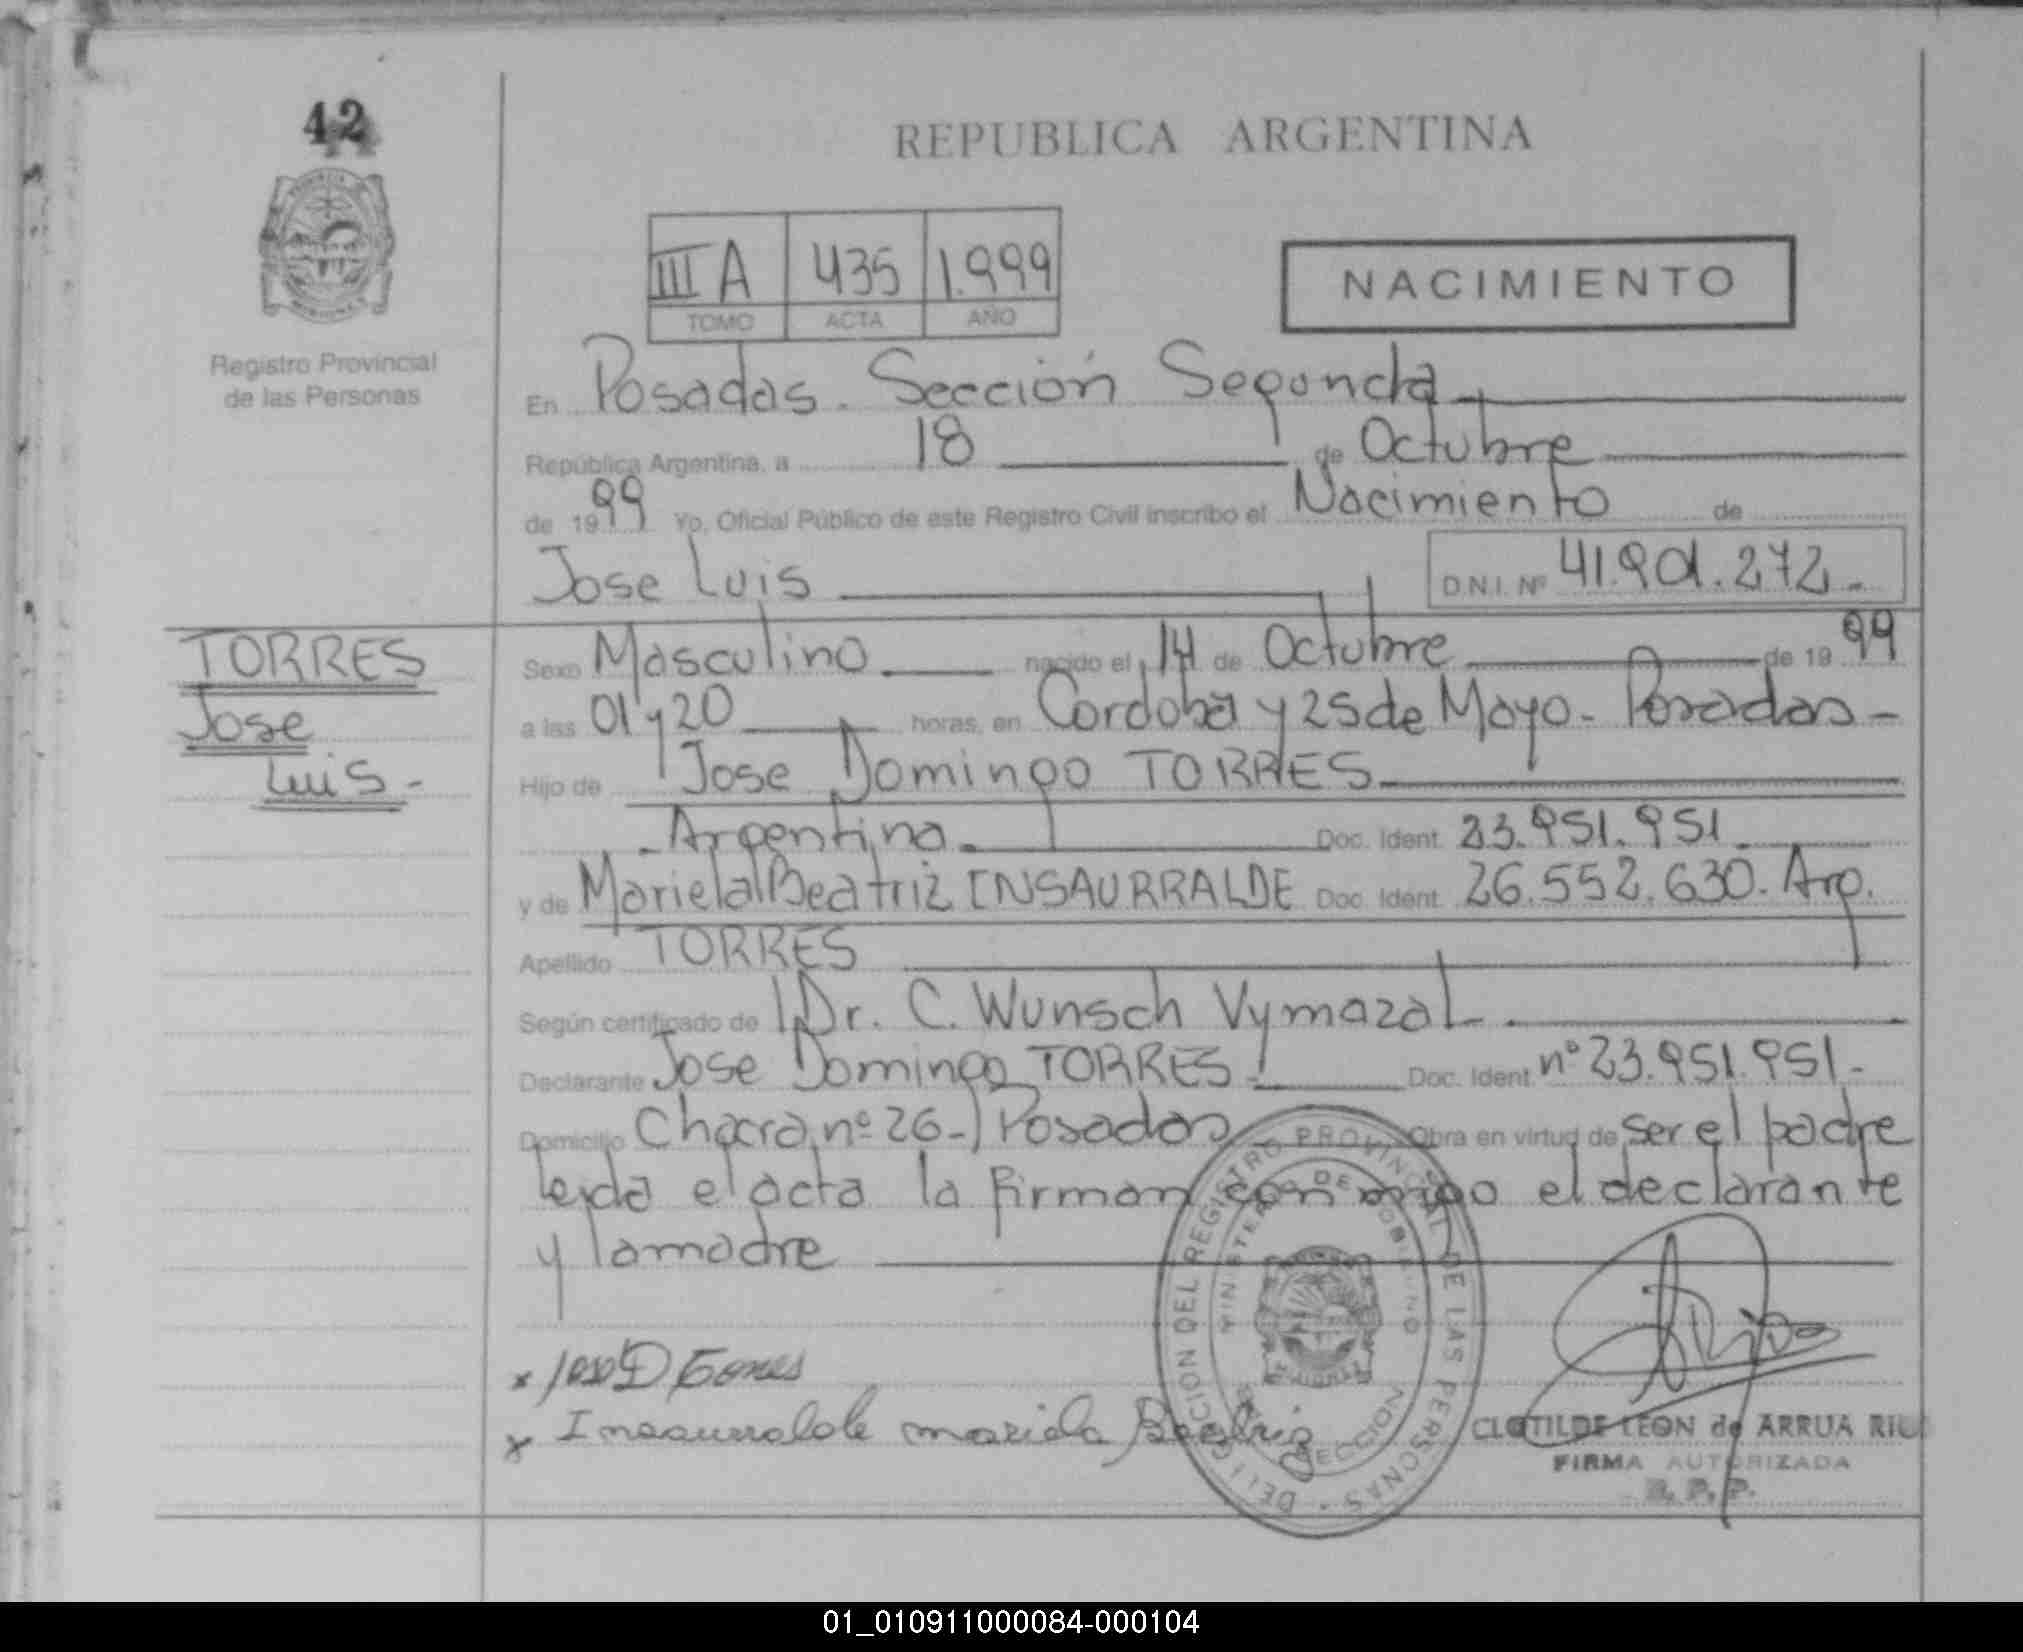 42
REPUBLICA ARGENTINA
III A 435 1.999
TOMO ACTA AÑO
NACIMIENTO
Registro Provincial
de las Personas
En Posadas. Sección Segunda
República Argentina, a 18 de Octubre
de 1999 Yo, Oficial Público de este Registro Civil inscribo el Nacimiento de
Jose Luis D.N.I. Nº 41.901.272.-
TORRES
Jose
Luis.-
Sexo Masculino nacido el 14 de Octubre de 1999
a las 01 y 20 horas, en Cordoba y 25 de Mayo - Posadas -
Hijo de Jose Domingo TORRES
- Argentino. Doc. Ident. 23.951.951
y de Mariela Beatriz INSAURRALDE Doc. Ident. 26.552.630. Arg.
Apellido TORRES
Según certificado de Dr. C. Wunsch Vymazal
Declarante Jose Domingo TORRES - Doc. Ident. nº 23.951.951.-
Domicilio Chacra nº 26 - Posadas Obra en virtud de ser el padre
leida el acta la firman conmigo el declarante
y la madre
x Jose D Torres
x Insaurralde mariela Beatriz
DELEGACION DEL REGISTRO PROVINCIAL DE LAS PERSONAS
MINISTERIO DE GOBIERNO
SECCION
CLOTILDE LEON de ARRUA RIU
FIRMA AUTORIZADA
R. P. P.
01_010911000084-000104